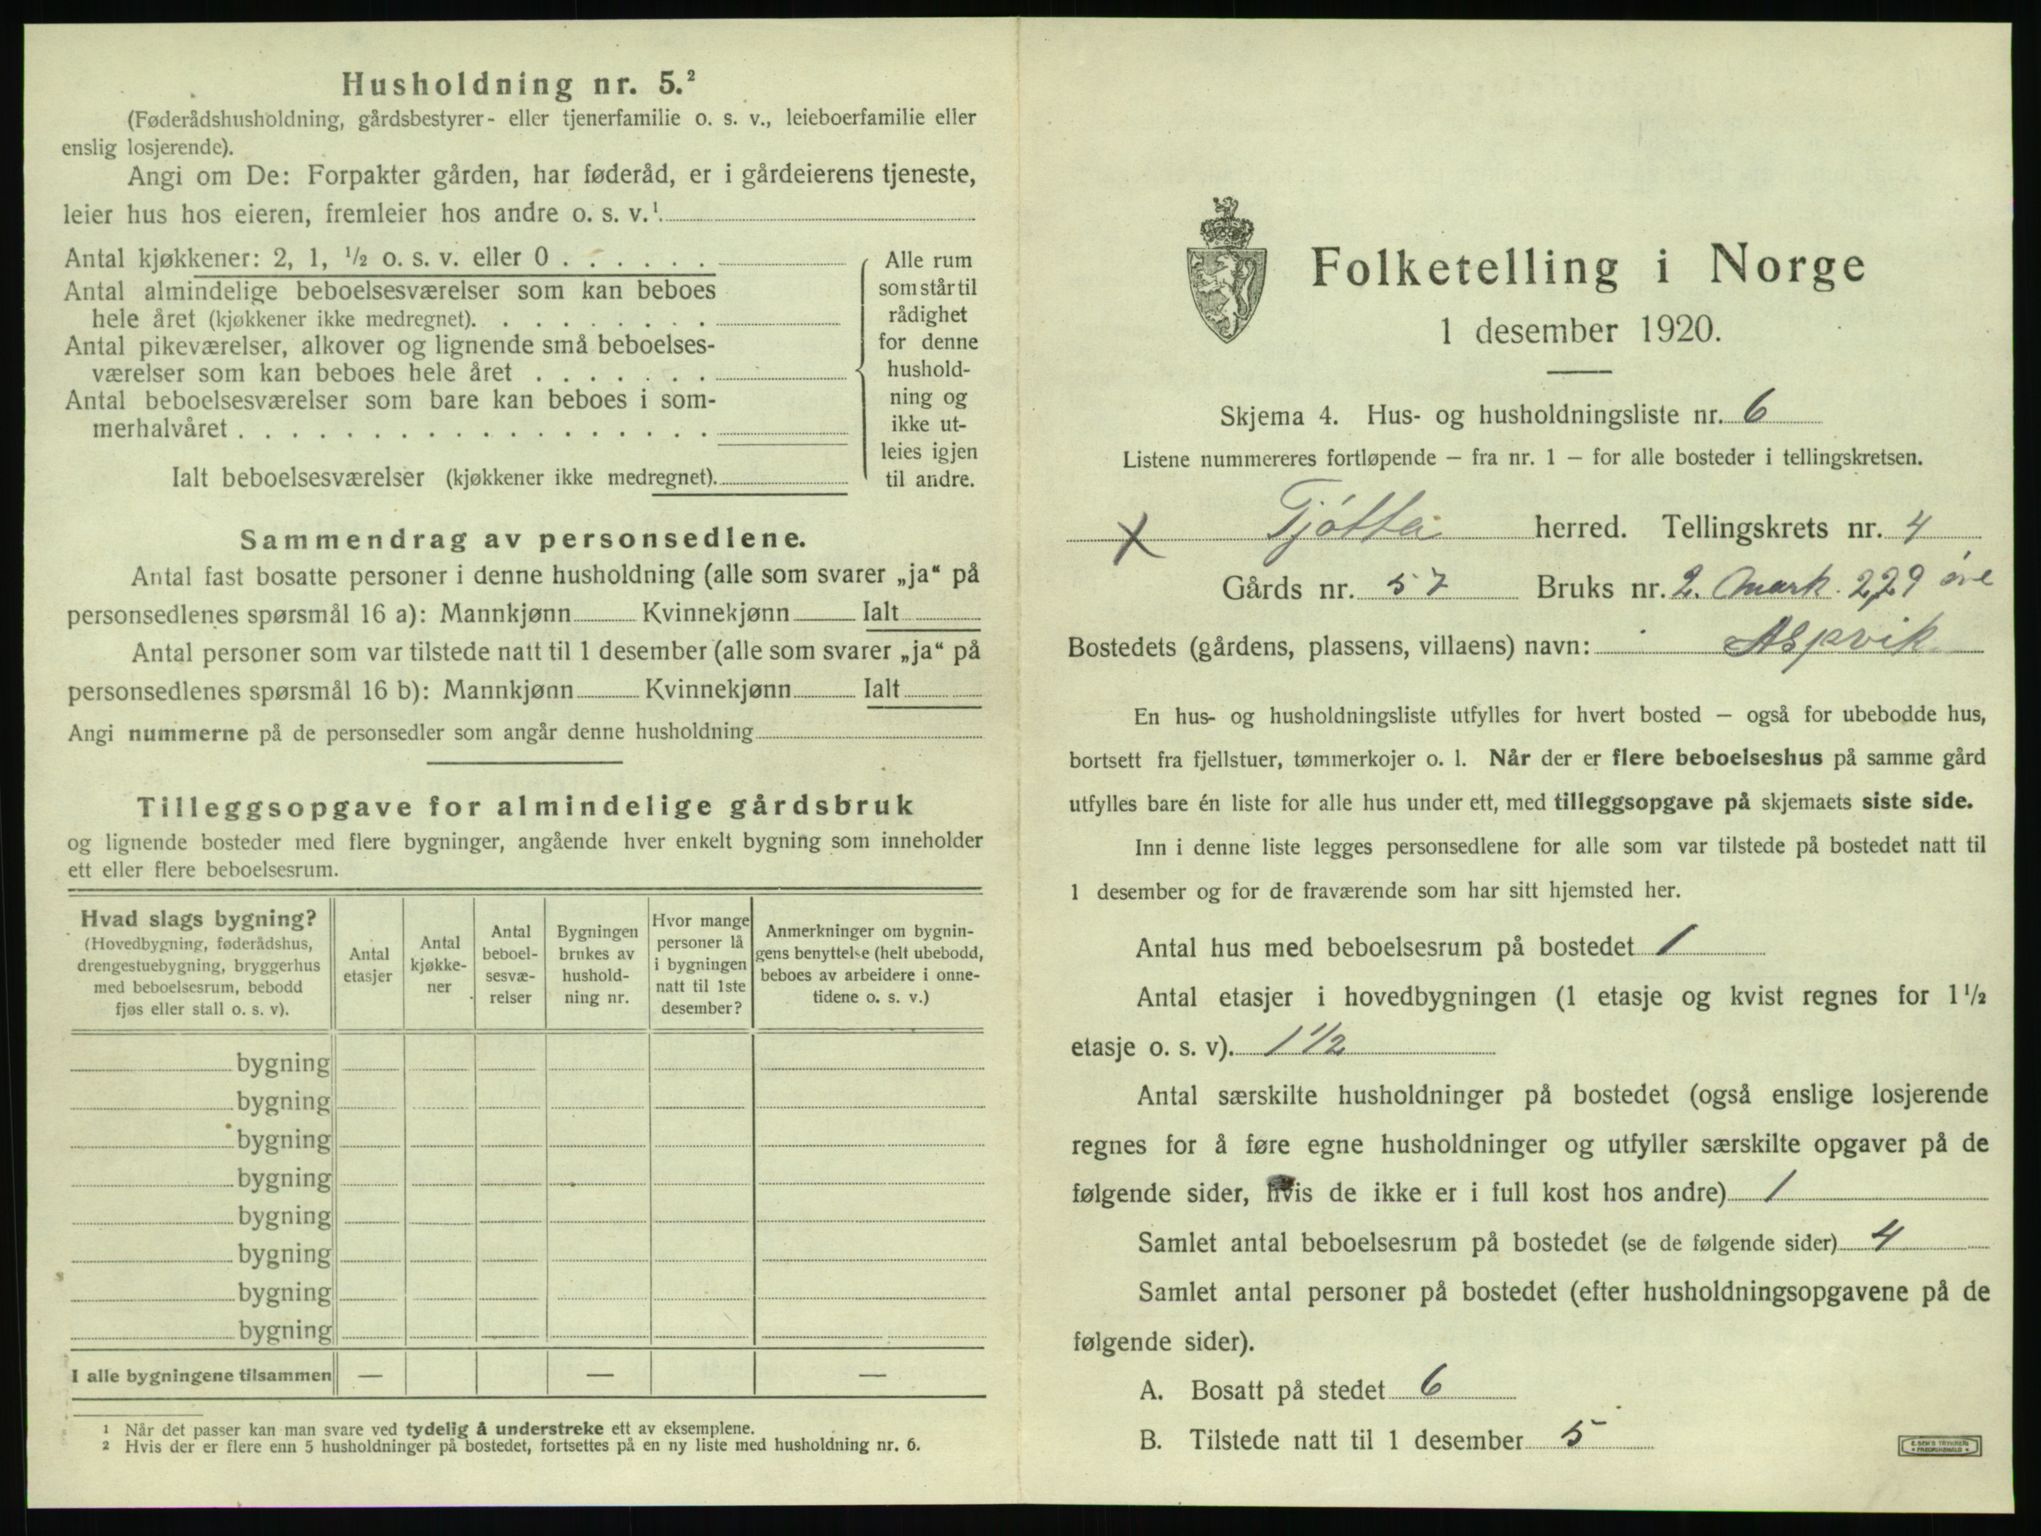 Husholdning nr. 5.²
(Føderådshusholdning, gårdsbestyrer- eller tjenerfamilie o. s. v., leieboerfamilie eller
enslig losjerende).
Angi om De: Forpakter gården, har føderåd, er i gårdeierens tjeneste,
leier hus hos eieren, fremleier hos andre o. s. v.¹
Antal kjøkkener: 2, 1, ½ o. s. v. eller 0 . . . . . .
Antal almindelige beboelsesværelser som kan beboes
hele året (kjøkkener ikke medregnet). . . . . . . . .
Antal pikeværelser, alkover og lignende små beboelses-
værelser som kan beboes hele året . . . . . . .
Antal beboelsesværelser som bare kan beboes i som-
merhalvåret . . . . . . . . . . . . . . . . . .
Ialt beboelsesværelser (kjøkkener ikke medregnet).
Alle rum
som står til
rådighet
for denne
hushold-
ning og
ikke ut-
leies igjen
til andre.
Sammendrag av personsedlene.
Antal fast bosatte personer i denne husholdning (alle som svarer „ja“ på
personsedlenes spørsmål 16 a): Mannkjønn Kvinnekjønn Ialt
Antal personer som var tilstede natt til 1 desember (alle som svarer „ja“ på
personsedlenes spørsmål 16 b): Mannkjønn Kvinnekjønn Ialt
Angi nummerne på de personsedler som angår denne husholdning
Tilleggsopgave for almindelige gårdsbruk
og lignende bosteder med flere bygninger, angående hver enkelt bygning som inneholder
ett eller flere beboelsesrum.
Hvad slags bygning?
(Hovedbygning, føderådshus,
drengestuebygning, bryggerhus
med beboelsesrum, bebodd
fjøs eller stall o. s. v).
Antal
etasjer
Antal
kjøkke-
ner
Antal
beboel-
sesvæ-
relser
Bygningen
brukes av
hushold-
ning nr.
Hvor mange
personer lå
i bygningen
natt til 1ste
desember?
Anmerkninger om bygnin-
gens benyttelse (helt ubebodd,
beboes av arbeidere i onne-
tidene o. s. v.)
bygning
bygning
bygning
bygning
bygning
bygning
bygning
bygning
I alle bygningene tilsammen — — —
¹ Når det passer kan man svare ved tydelig å understreke ett av eksemplene.
² Hvis der er flere enn 5 husholdninger på bostedet, fortsettes på en ny liste med husholdning nr. 6.
Folketelling i Norge
1 desember 1920.
Skjema 4. Hus- og husholdningsliste nr. 6
Listene nummereres fortløpende – fra nr. 1 – for alle bosteder i tellingskretsen.
X Tjøtta herred. Tellingskrets nr. 4
Gårds nr. 57 Bruks nr. 2. Mark. 2,29 øre
Bostedets (gårdens, plassens, villaens) navn: Aspvik
En hus- og husholdningsliste utfylles for hvert bosted – også for ubebodde hus,
bortsett fra fjellstuer, tømmerkojer o. l. Når der er flere beboelseshus på samme gård
utfylles bare én liste for alle hus under ett, med tilleggsopgave på skjemaets siste side.
Inn i denne liste legges personsedlene for alle som var tilstede på bostedet natt til
1 desember og for de fraværende som har sitt hjemsted her.
Antal hus med beboelsesrum på bostedet 1
Antal etasjer i hovedbygningen (1 etasje og kvist regnes for 1½
etasje o. s. v). 1 1/2
Antal særskilte husholdninger på bostedet (også enslige losjerende
regnes for å føre egne husholdninger og utfyller særskilte opgaver på de
følgende sider, hvis de ikke er i full kost hos andre) 1
Samlet antal beboelsesrum på bostedet (se de følgende sider) 4
Samlet antal personer på bostedet (efter husholdningsopgavene på de
følgende sider).
A. Bosatt på stedet 6
B. Tilstede natt til 1 desember 5